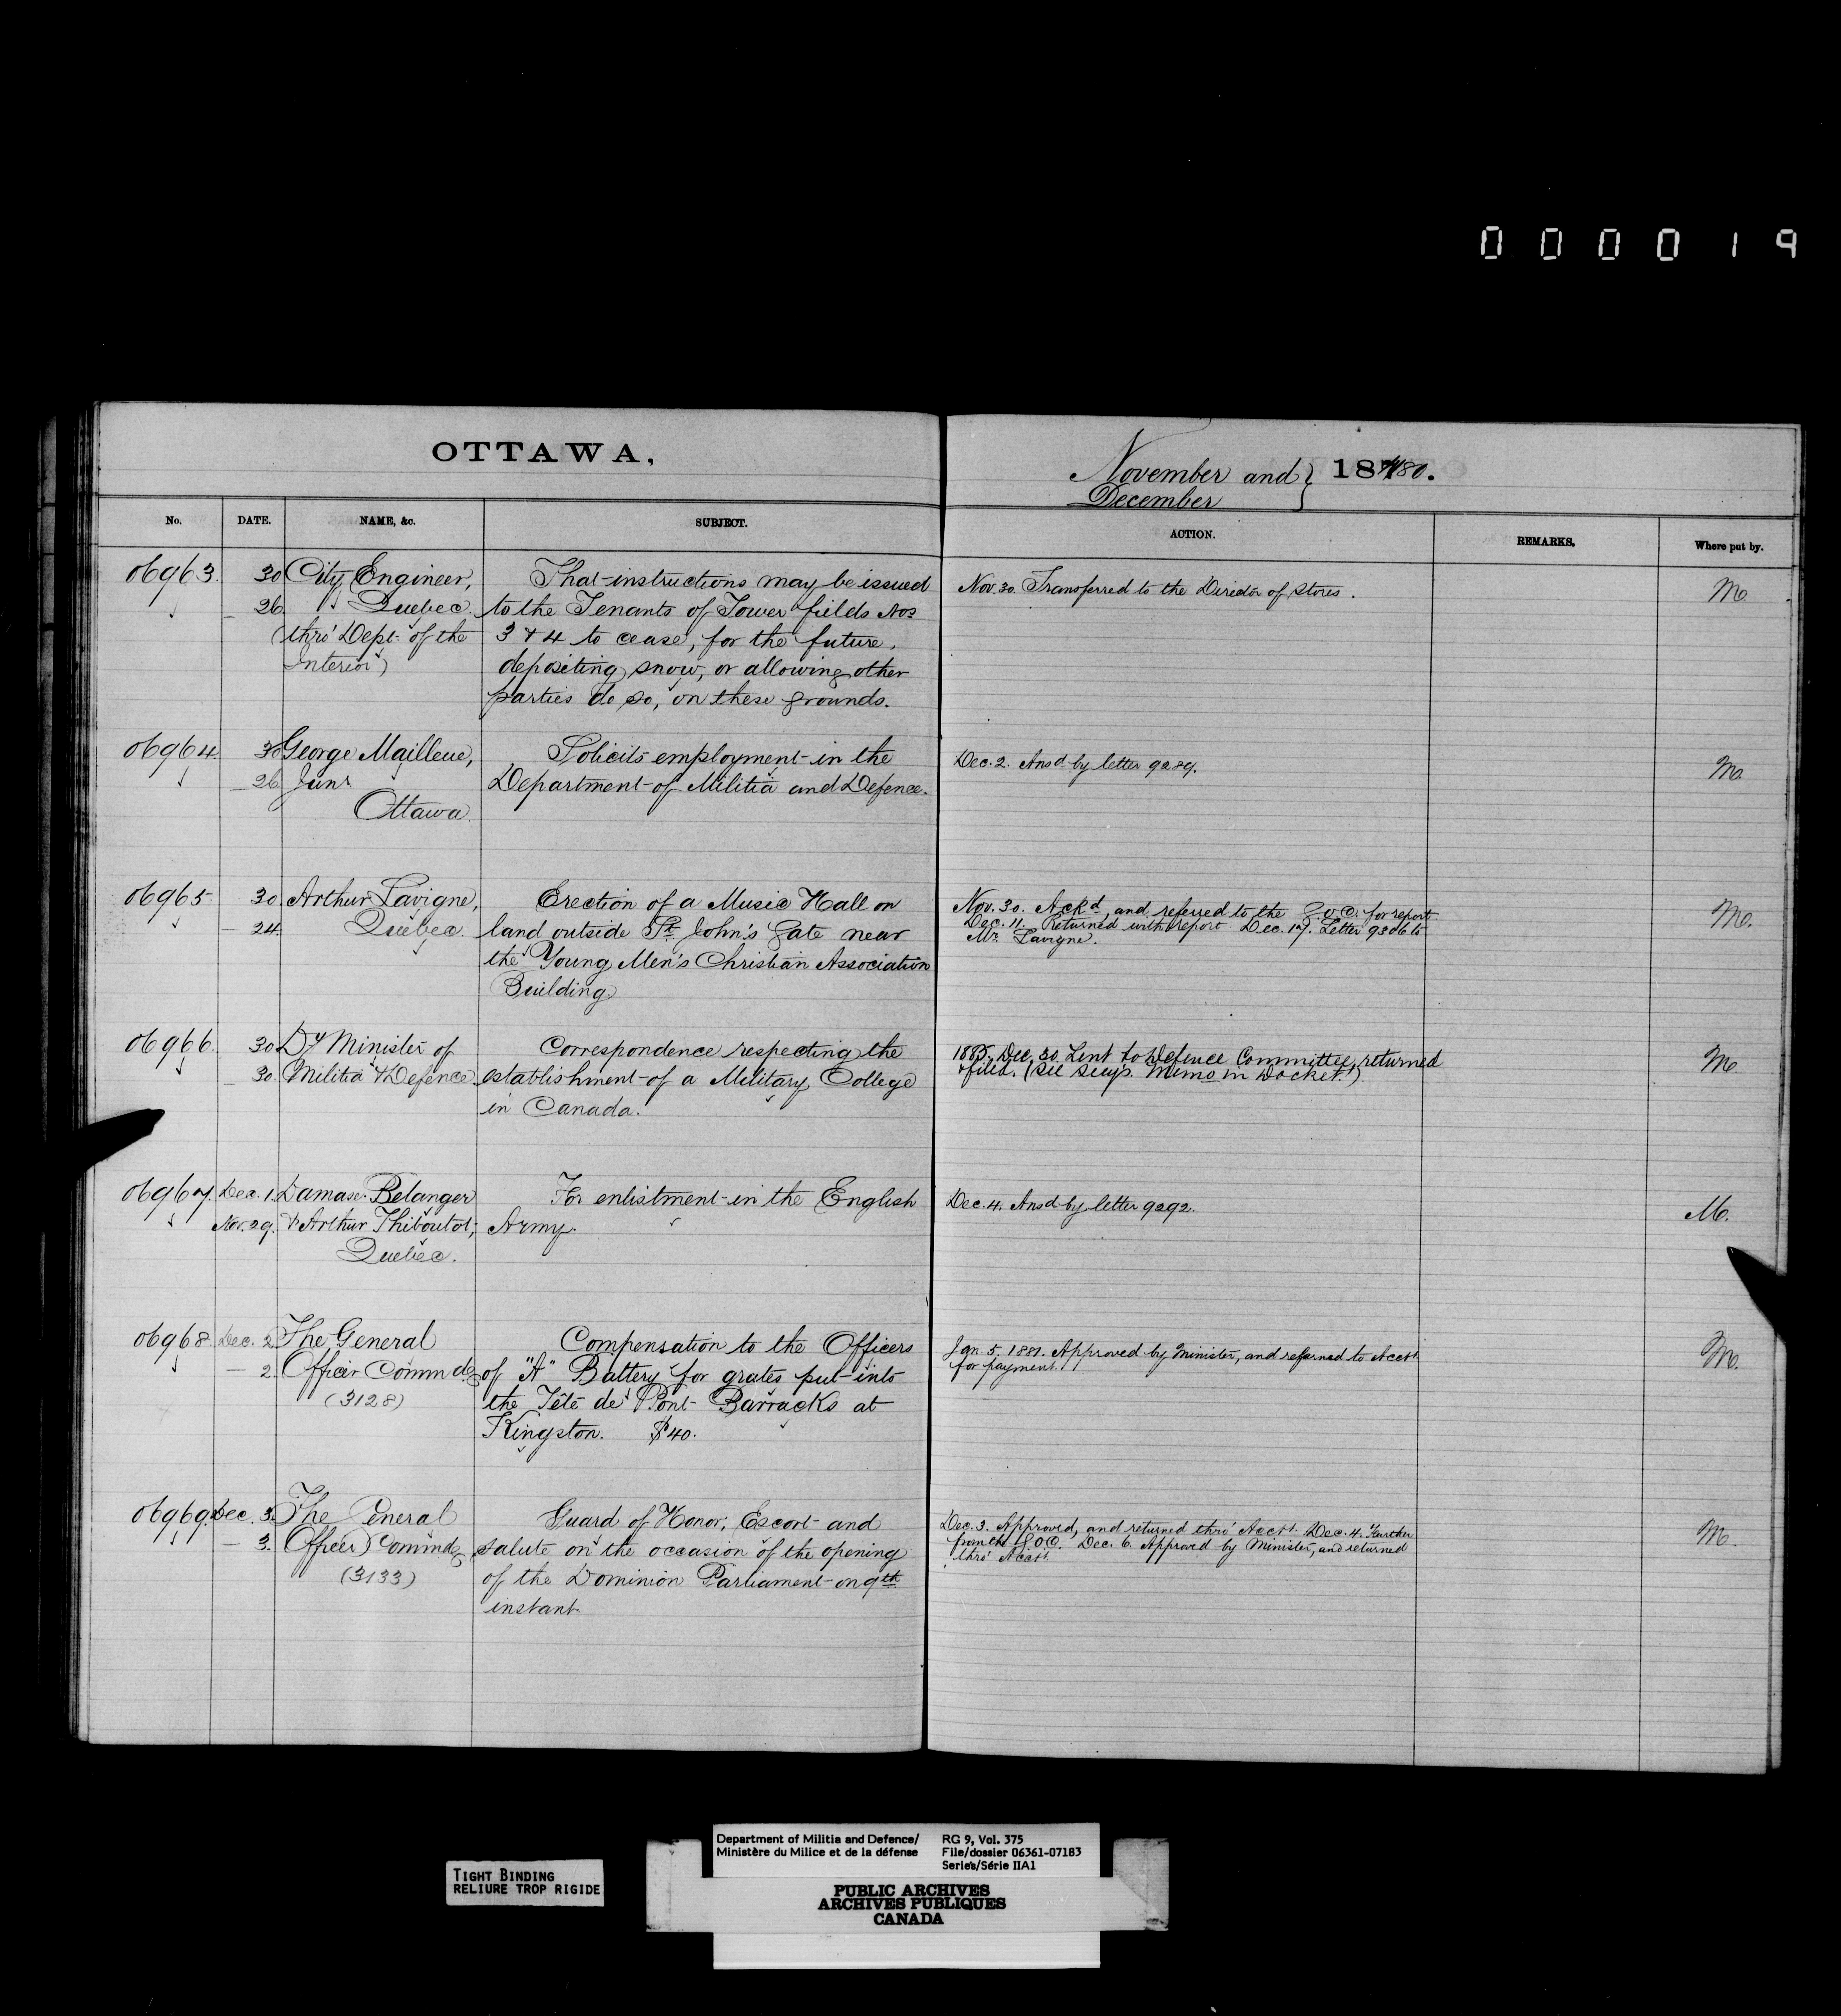 000019
OTTAWA,
November and } 1880.
December
No. DATE. NAME, &c. SUBJECT.
ACTION. REMARKS. Where put by.
06963. 30 City Engineer, That instructions may be issued
26 Quebec. to the Tenants of Tower fields Nos
(thro' Dept. of the 3 & 4 to cease, for the future,
Interior) depositing snow, or allowing other
parties do so, on these grounds.
Nov. 30. Transferred to the Director of Stores.
M.
06964. 30 George Mailleue, Solicits employment in the
26 Junr Department of Militia and Defence.
Ottawa.
Dec. 2. Ansd by letter 9289.
M.
06965 30 Arthur Lavigne, Erection of a Music Hall on
— 24. Quebec. land outside St. John's Gate near
the Young Men's Christian Association
Building
Nov. 30. Ackd and referred to the for report.
Dec. 11. Returned with report Dec. 17. Letter 9306 to
Mr. Lavigne.
M.
06966. 30 Dy Minister of Correspondence respecting the
30. Militia & Defence establishment of a Military College
in Canada.
1885. Dec. 30. Lent to Defence Committee, returned
& filed. (See Secys. Memo in Docket.)
M
06967. Dec. 1. Damase Belanger For enlistment in the English
Nov. 29. & Arthur Thiboutot, Army.
Quebec.
Dec. 4. Ansd by letter 9292.
M.
06968 Dec. 2 The General Compensation to the Officers
— 2. Officer Commdg of "A" Battery for grates put into
(3128) the Tête de Pont Barracks at
Kingston. $40.
Jan. 5. 1881. Approved by Minister, and referred to Acctt.
for payment.
M.
06969. Dec. 3. The General Guard of Honor, Escort and
— 3. Officer Commdg salute on the occasion of the opening
(3133) of the Dominion Parliament on 9th
instant.
Dec. 3. Approved, and returned thro' Acctt. Dec. 4. Further
from the G.O.C. Dec. 6. Approved by Minister, and returned
thro' Acctt.
M.
TIGHT BINDING
RELIURE TROP RIGIDE
Department of Militia and Defence/ RG 9, Vol. 375
Ministère du Milice et de la défense File/dossier 06361-07183
Series/Série IIA1
PUBLIC ARCHIVES
ARCHIVES PUBLIQUES
CANADA